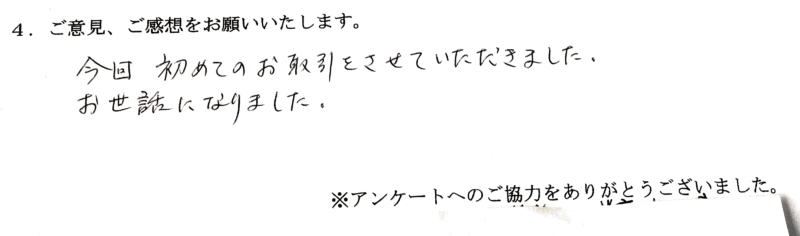 4．ご意見、ご感想をお願いいたします。
今回 初めてのお取引をさせていただきました.
お世話になりました.
※アンケートへのご協力をありがとうございました。